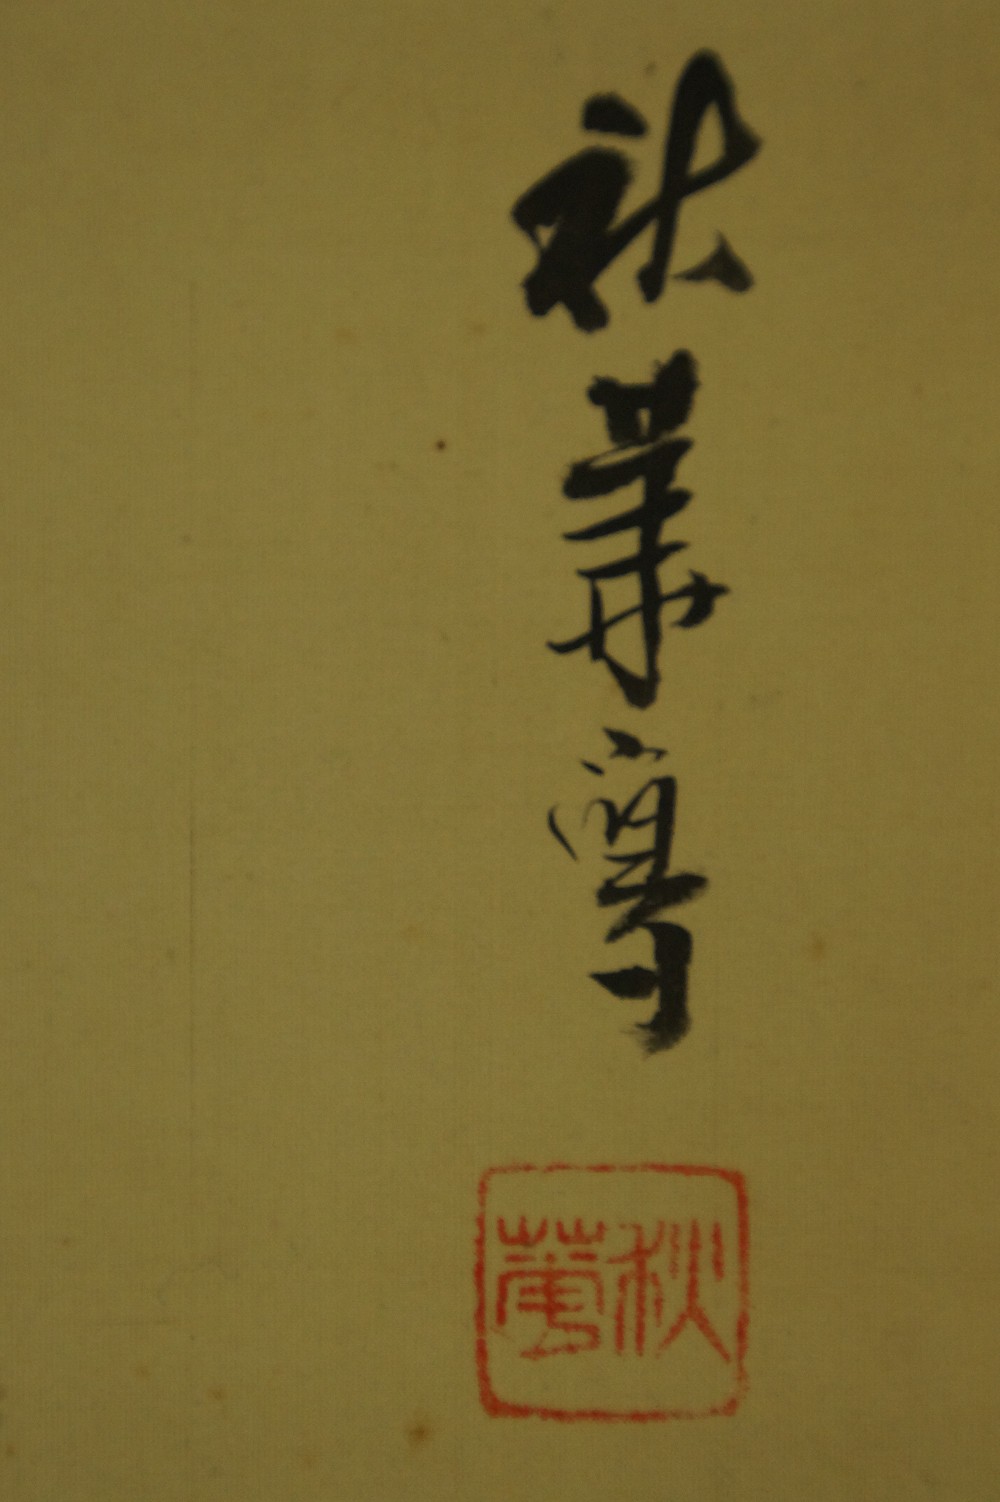 秋華寫
秋華